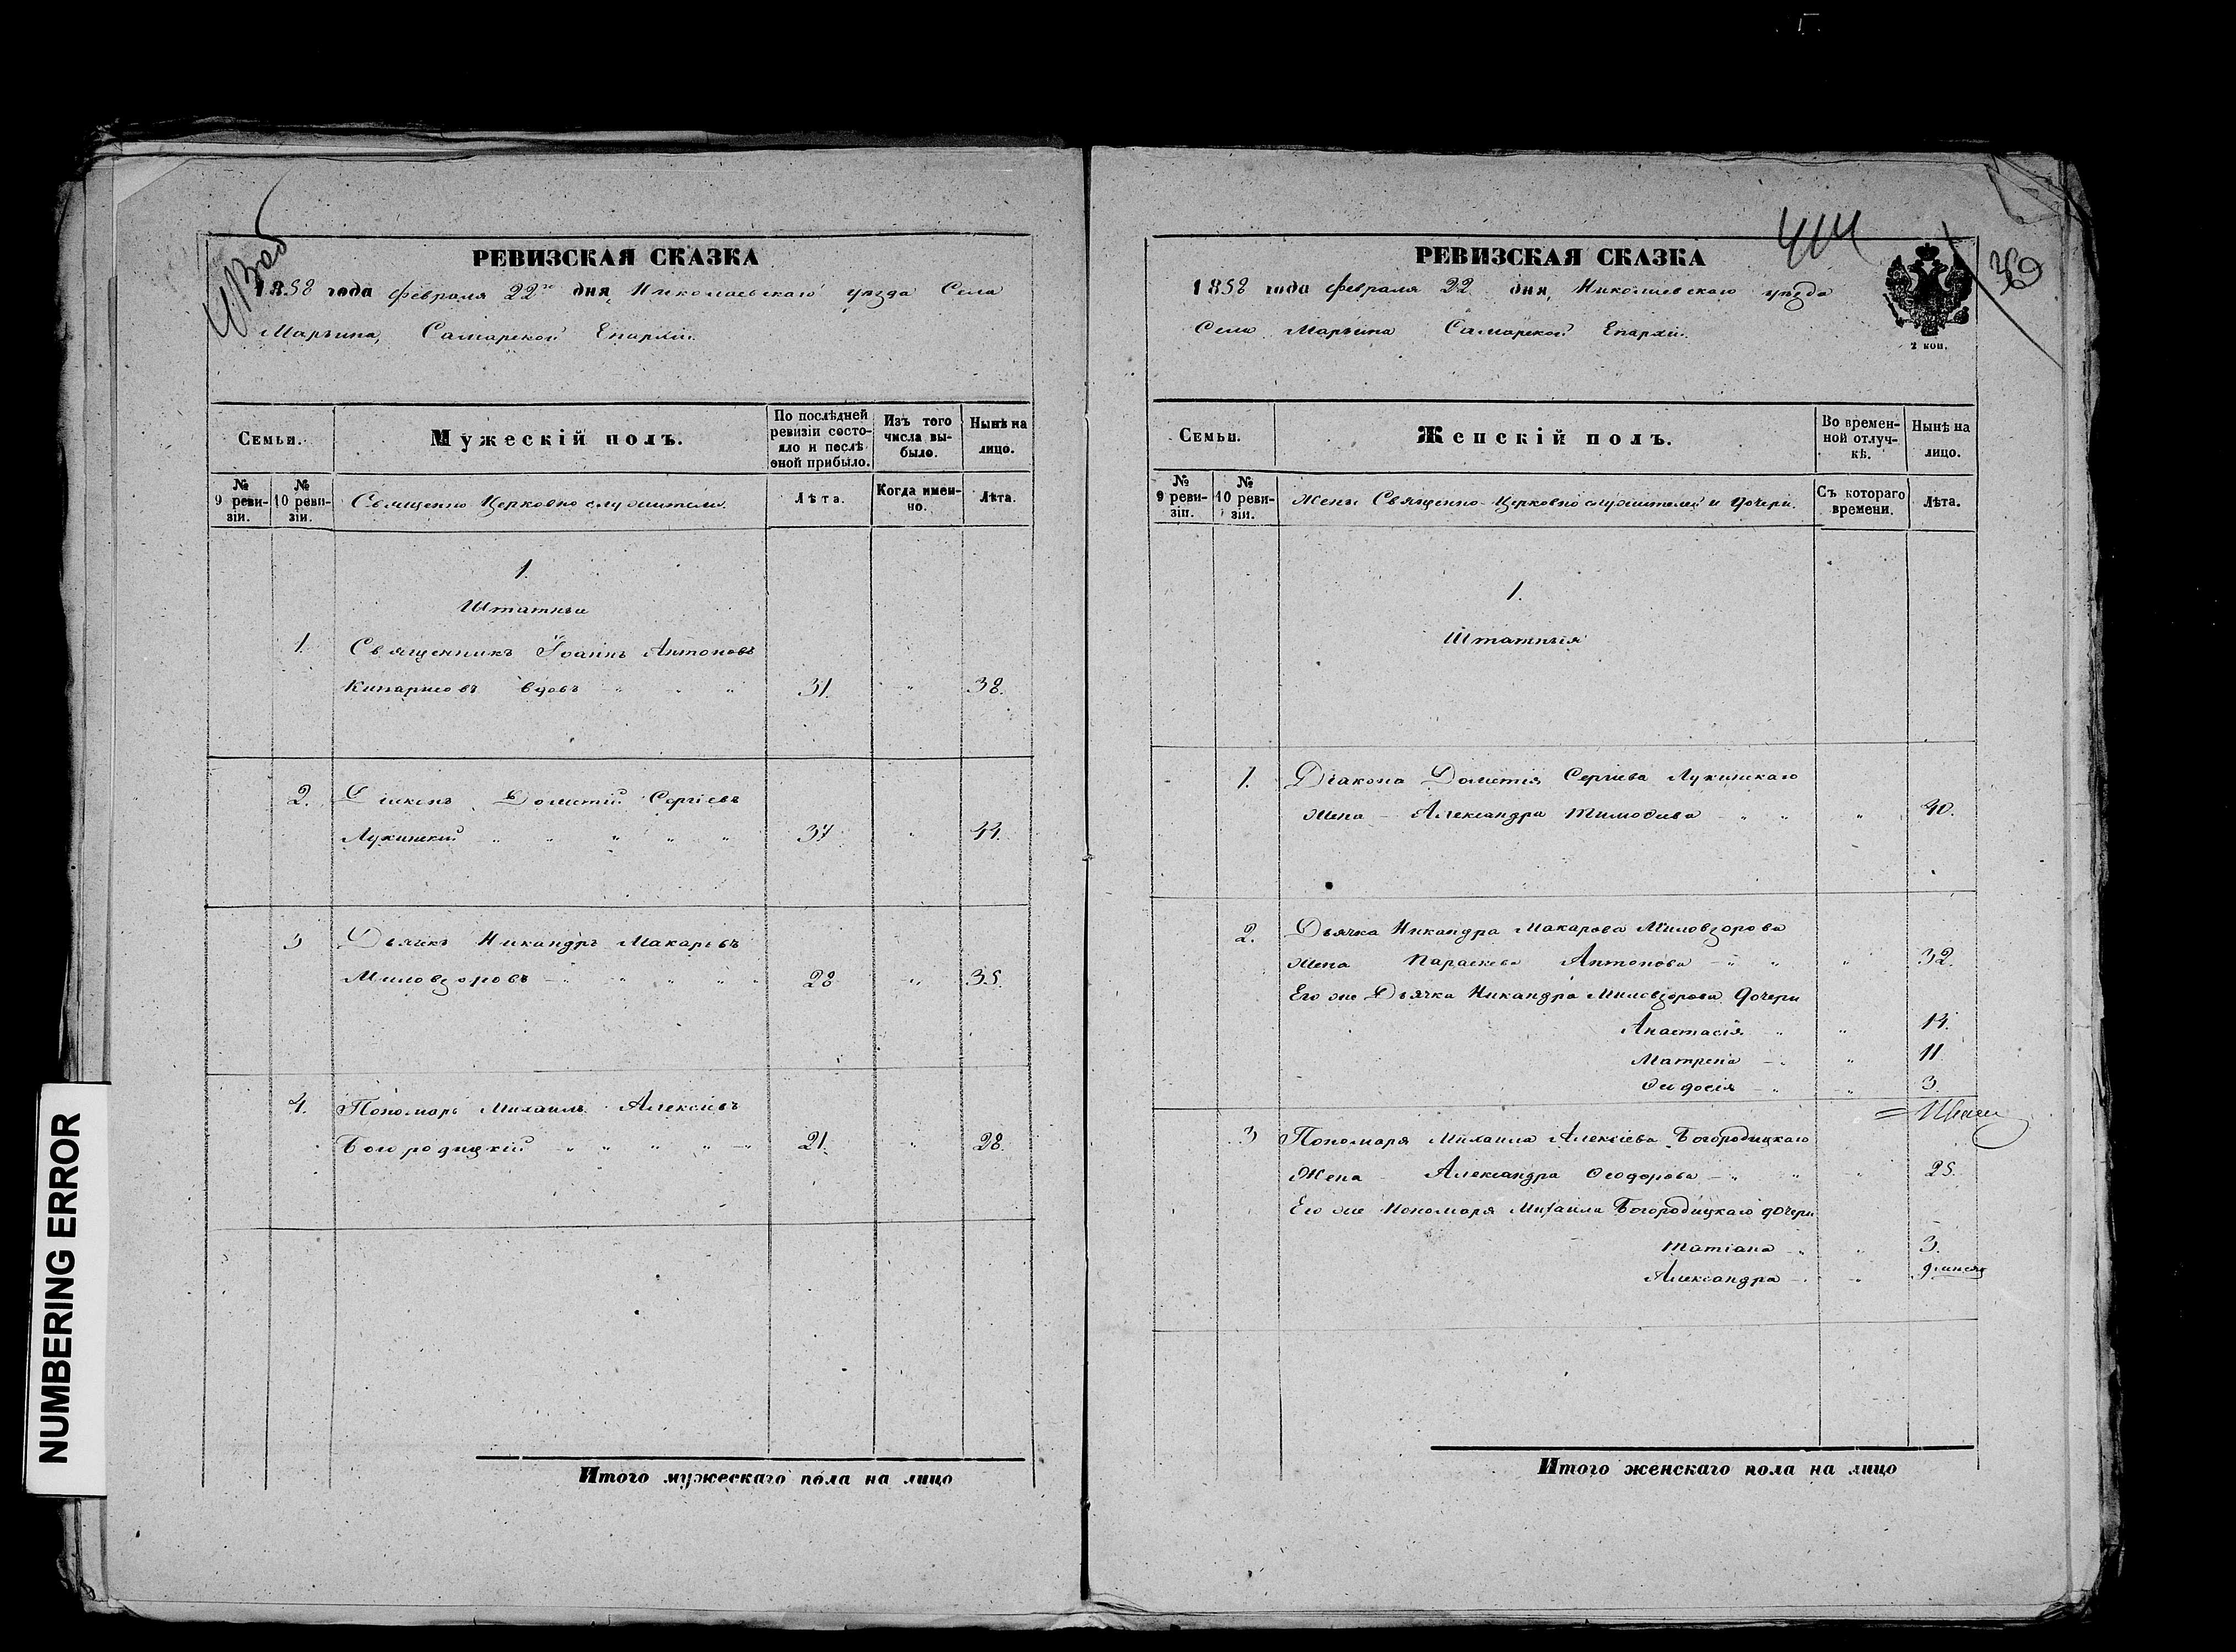 РЕВИЗСКАЯ СКАЗКА
1858 года февраля 22го дня, Николаевскаго уѣзда Села
Марьина, Самарской Епархіи.
Семьи.
Мужескій полъ.
По послѣдней ревизіи состо-
яло и послѣ
оной прибыло.
Изъ того
числа вы-
было.
Нынѣ на
лицо.
№
9 реви-
зіи.
№
10 реви-
зіи.
Священно Церковно служители.
Лѣта.
Когда имен-
но.
Лѣта.
1.
Штатные
1. Священникъ Іоаннъ Антоновъ
Кипарисовъ вдовъ " " " 31. " 38.
2. Діаконъ Дометій Сергіевъ
Лукинскій " " " " " 37 " 44.
3 Дьячекъ Никандръ Макаровъ
Миловзоровъ " " " " " 28 " 35.
4. Пономарь Михаилъ Алексіевъ
Богородицкій " " " " " 21. " 28.
Итого мужескаго пола на лицо
NUMBERING ERROR
414
39
РЕВИЗСКАЯ СКАЗКА
1858 года февраля 22 дня, Николаевскаго уѣзда
Села Марьина Самарской Епархіи.
2 коп.
Семьи.
Женскій полъ.
Во времен-
ной отлуч-
кѣ.
Нынѣ на
лицо.
№
9 реви-
зіи.
№
10 реви-
зіи.
Жены Священно-Церковно служителей и дочери.
Съ котораго
времени.
Лѣта.
1.
Штатныя
1. Діакона Дометія Сергіева Лукинскаго
Жена – Александра Тимофиева " " " 40.
2. Дьячка Никандра Макарова Миловзорова
Жена Параскева Антонова " " " 32.
Его же Дьячка Никандра Миловзорова дочери
Анастасія " " 14.
Матрена " " 11
Феодосія " " 3.
3 Пономаря Михаила Алексіева Богородицкаго
Жена Александра Феодорова " " " 25.
Его же Пономаря Михаила Богородицкаго дочери
Татіана " " 3.
Александра " "
Итого женскаго пола на лицо